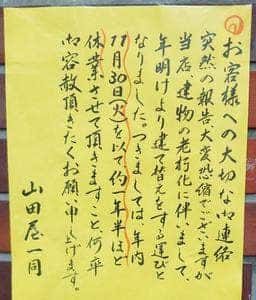 お客様への大切な御連絡
突然の報告大変恐縮でございますが
当店、建物の老朽化に伴いまして、
年明けより建て替えをする運びと
なりました。つきましては、年内
11月30日(火)を以て約一年半ほど
休業させて頂きますこと、何卒
御容赦頂きたくお願い申し上げます。
山田屋一同